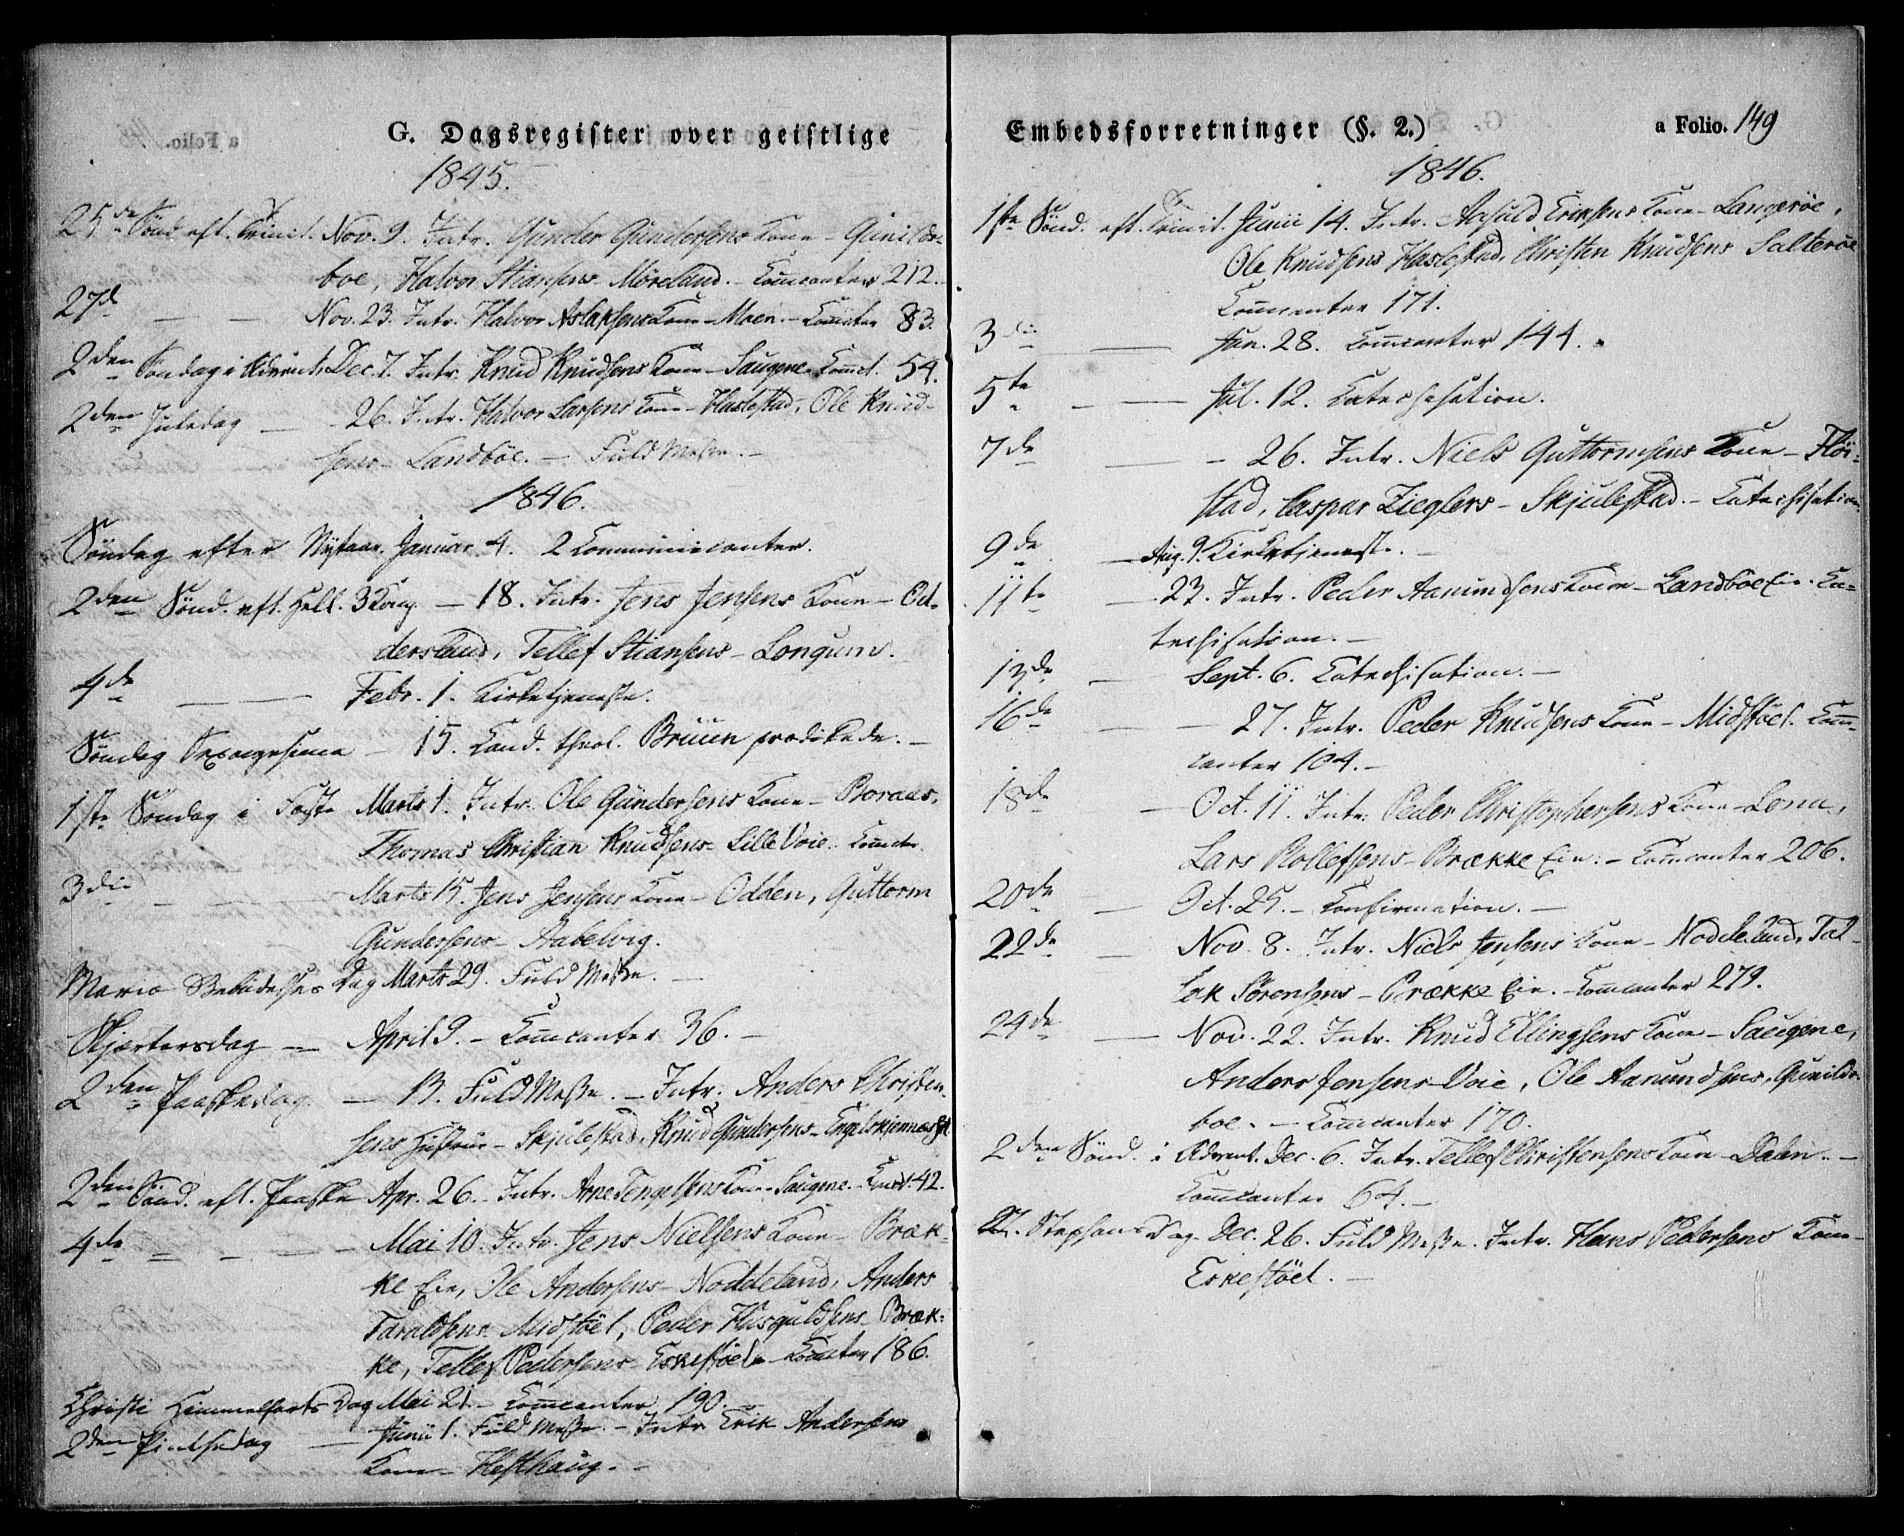 G. Dagsregister over geistlige
1845.
25de Sønd. eft. Trinit. Nov. 9. Intr. Gunder Gundersens Kone - Gunilds-
boe, Halvor Stiansens Møreland. - Communicanter 212.
27d — — Nov. 23. Intr. Halvor Aslaksens Kone - Moen. - 83.
2den Søndag i Advent, Dec. 7. Intr. Knud Knudsens Kone - Saugene. 54.
2den Juledag — - 26. Intr. Halvor Larsens Kone - Haslestad, Ole Knud-
sens - Landbøe. - Fuld Messe. -
1846.
Søndag efter Nytaar. Januar 4. 2 Communicanter.
2den Sønd. eft. Hell. 3 Kong. - 18. Intr. Jens Jensens Kone - Od-
dersland, Tellef Stiansens - Longum.
4de — — Febr. 1. Kirketjeneste.
Søndag Sexagesima - 15. Cand. theol. Bruun prædikede. -
1ste Søndag i Faste Marts 1. Intr. Ole Gundersens Kone - Boraas,
Thomas Christian Knudsens - Lille Voie.
3die - - - Marts 15. Jens Jensens Kone - Odden, Guttorm
Gundersens - Aabelvig.
Maria Bebudelses Dag Marts 29. Fuld Messe. -
Skjærtorsdag — April 9. - Comcanter 36. -
2den Paaskedag. - 13. Fuld Messe. - Intr. Anders Christen-
sens Hustru - Skjulestad, Knud Gundersens - Engelskjennæs
2den Sønd. eft. Paaske Apr. 26. Intr. Arne Tengelsens Kone - Saugene. 42.
4de - - - - Mai 10. Intr. Jens Nielsens Kone - Bræk-
ke Eie, Ole Andersens - Noddeland, Anders
Taraldsens Midstøel, Peder Husguldsens - Bræk-
ke, Tellef Pedersens - Eskestøel - 186.
Christi Himmelfarts Dag Mai 21. - Comcanter 190. -
2den Pintsedag — Junii 1. Fuld Messe. - Intr. Erik Andersens
Kone - Hesthaug. -
Embedsforretninger (§. 2.) a Folio. 149
1846.
1ste Sønd. eft. Trinit. Junii 14. Intr. Aasuld Eriksens Kone - Langerøe,
Ole Knudsens Haslestad, Christen Knudsens Salterøe
Comcanter 171.
3die — Jun. 28. Comcanter 144.
5te - — Jul. 12. Catechisation.
7de — - 26. Intr. Niels Guttormsens Kone - Fløi-
stad, Caspar Zieglers - Skjulestad. - Catechisation
9de — Aug. 9. Kirketjeneste. -
11te — 23. Intr. Peder Aamundsens Kone - Landbøe Eie. Ca-
techisation. -
13de — Sept. 6. Catechisation. -
16de — - 27. Intr. Peder Knudsens Kone - Midstøel. Com-
canter 104. -
18de - Oct. 11. Intr. Peder Christophersens Kone - Lona,
Lars Rollefsens - Brække Eie. - Comcanter 206.
20de — Oct. 25. - Confirmation. -
22de — Nov. 8. Intr. Niels Jensens Kone - Noddeland, Tal-
lak Sørensens - Brække Eie. - Comcanter 279.
24de — Nov. 22. Intr. Knud Ellingsens Kone - Saugene,
Anders Jensens Voie, Ole Aamundsens, Gunilds-
boe. - Comcanter 170.
2den Sønd. i Advent. Dec. 6. Intr. Tellef Christensens Kone - Dalen. -
Comcanter 64. -
St. Stephans Dag. Dec. 26. Fuld Messe. Intr. Hans Pedersens Kone -
Eskestøel. -